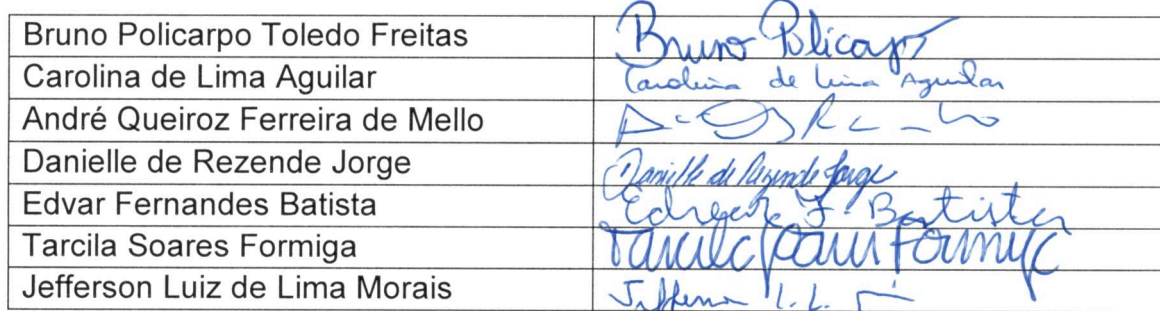 Bruno Policarpo Toledo Freitas Bruno Policarpo
Carolina de Lima Aguilar Carolina de Lima Aguilar
André Queiroz Ferreira de Mello
Danielle de Rezende Jorge Danielle de Rezende Jorge
Edvar Fernandes Batista F. Batista
Tarcila Soares Formiga Tarcila Soares Formiga
Jefferson Luiz de Lima Morais Jefferson L. L.